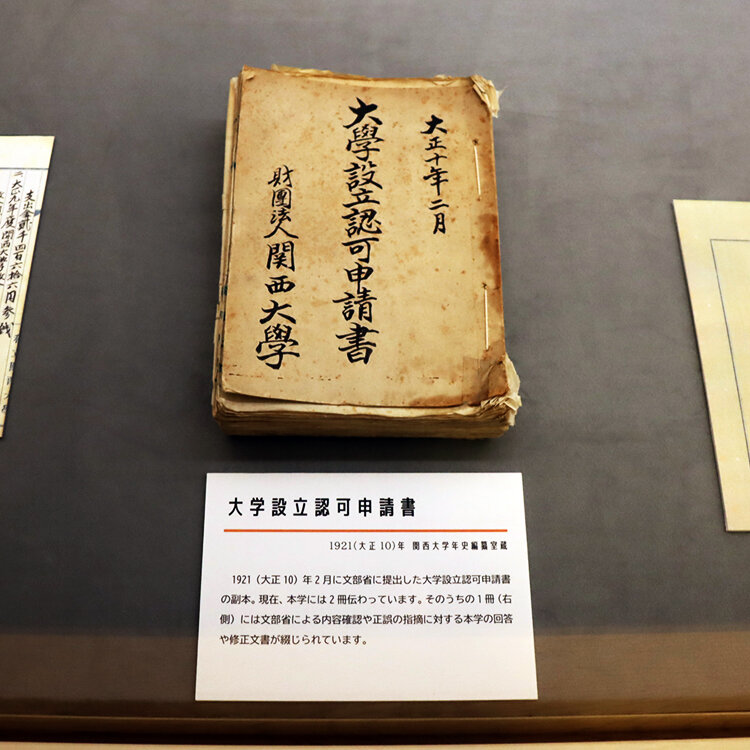 大正十年二月
大學設立認可申請書
財團法人關西大學
大学設立認可申請書
1921(大正10)年 関西大学年史編纂室蔵
1921（大正10）年2月に文部省に提出した大学設立認可申請書
の副本。現在、本学には2冊伝わっています。そのうちの1冊（右
側）には文部省による内容確認や正誤の指摘に対する本学の回答
や修正文書が綴じられています。
支出金貳千四百六拾六円参銭